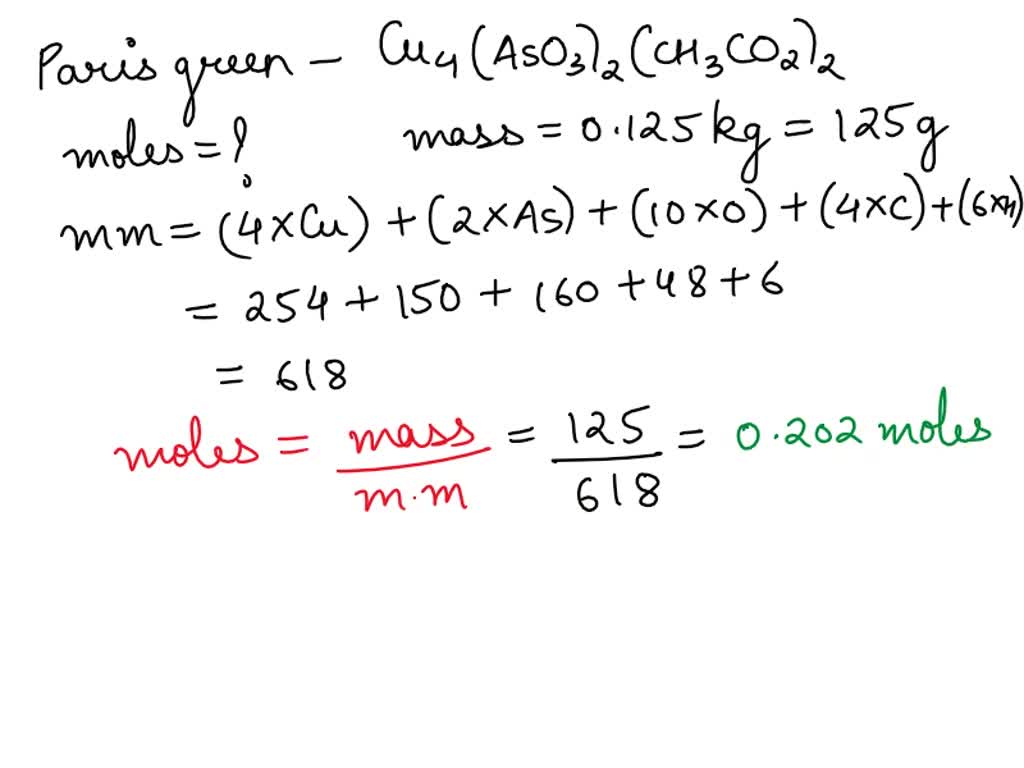 Paris green - Cu₄(AsO₃)₂(CH₃CO₂)₂
moles = ? mass = 0.125 kg = 125 g
mm = (4×Cu) + (2×As) + (10×O) + (4×C) + (6×H)
= 254 + 150 + 160 + 48 + 6
= 618
moles = mass/m.m = 125/618 = 0.202 moles